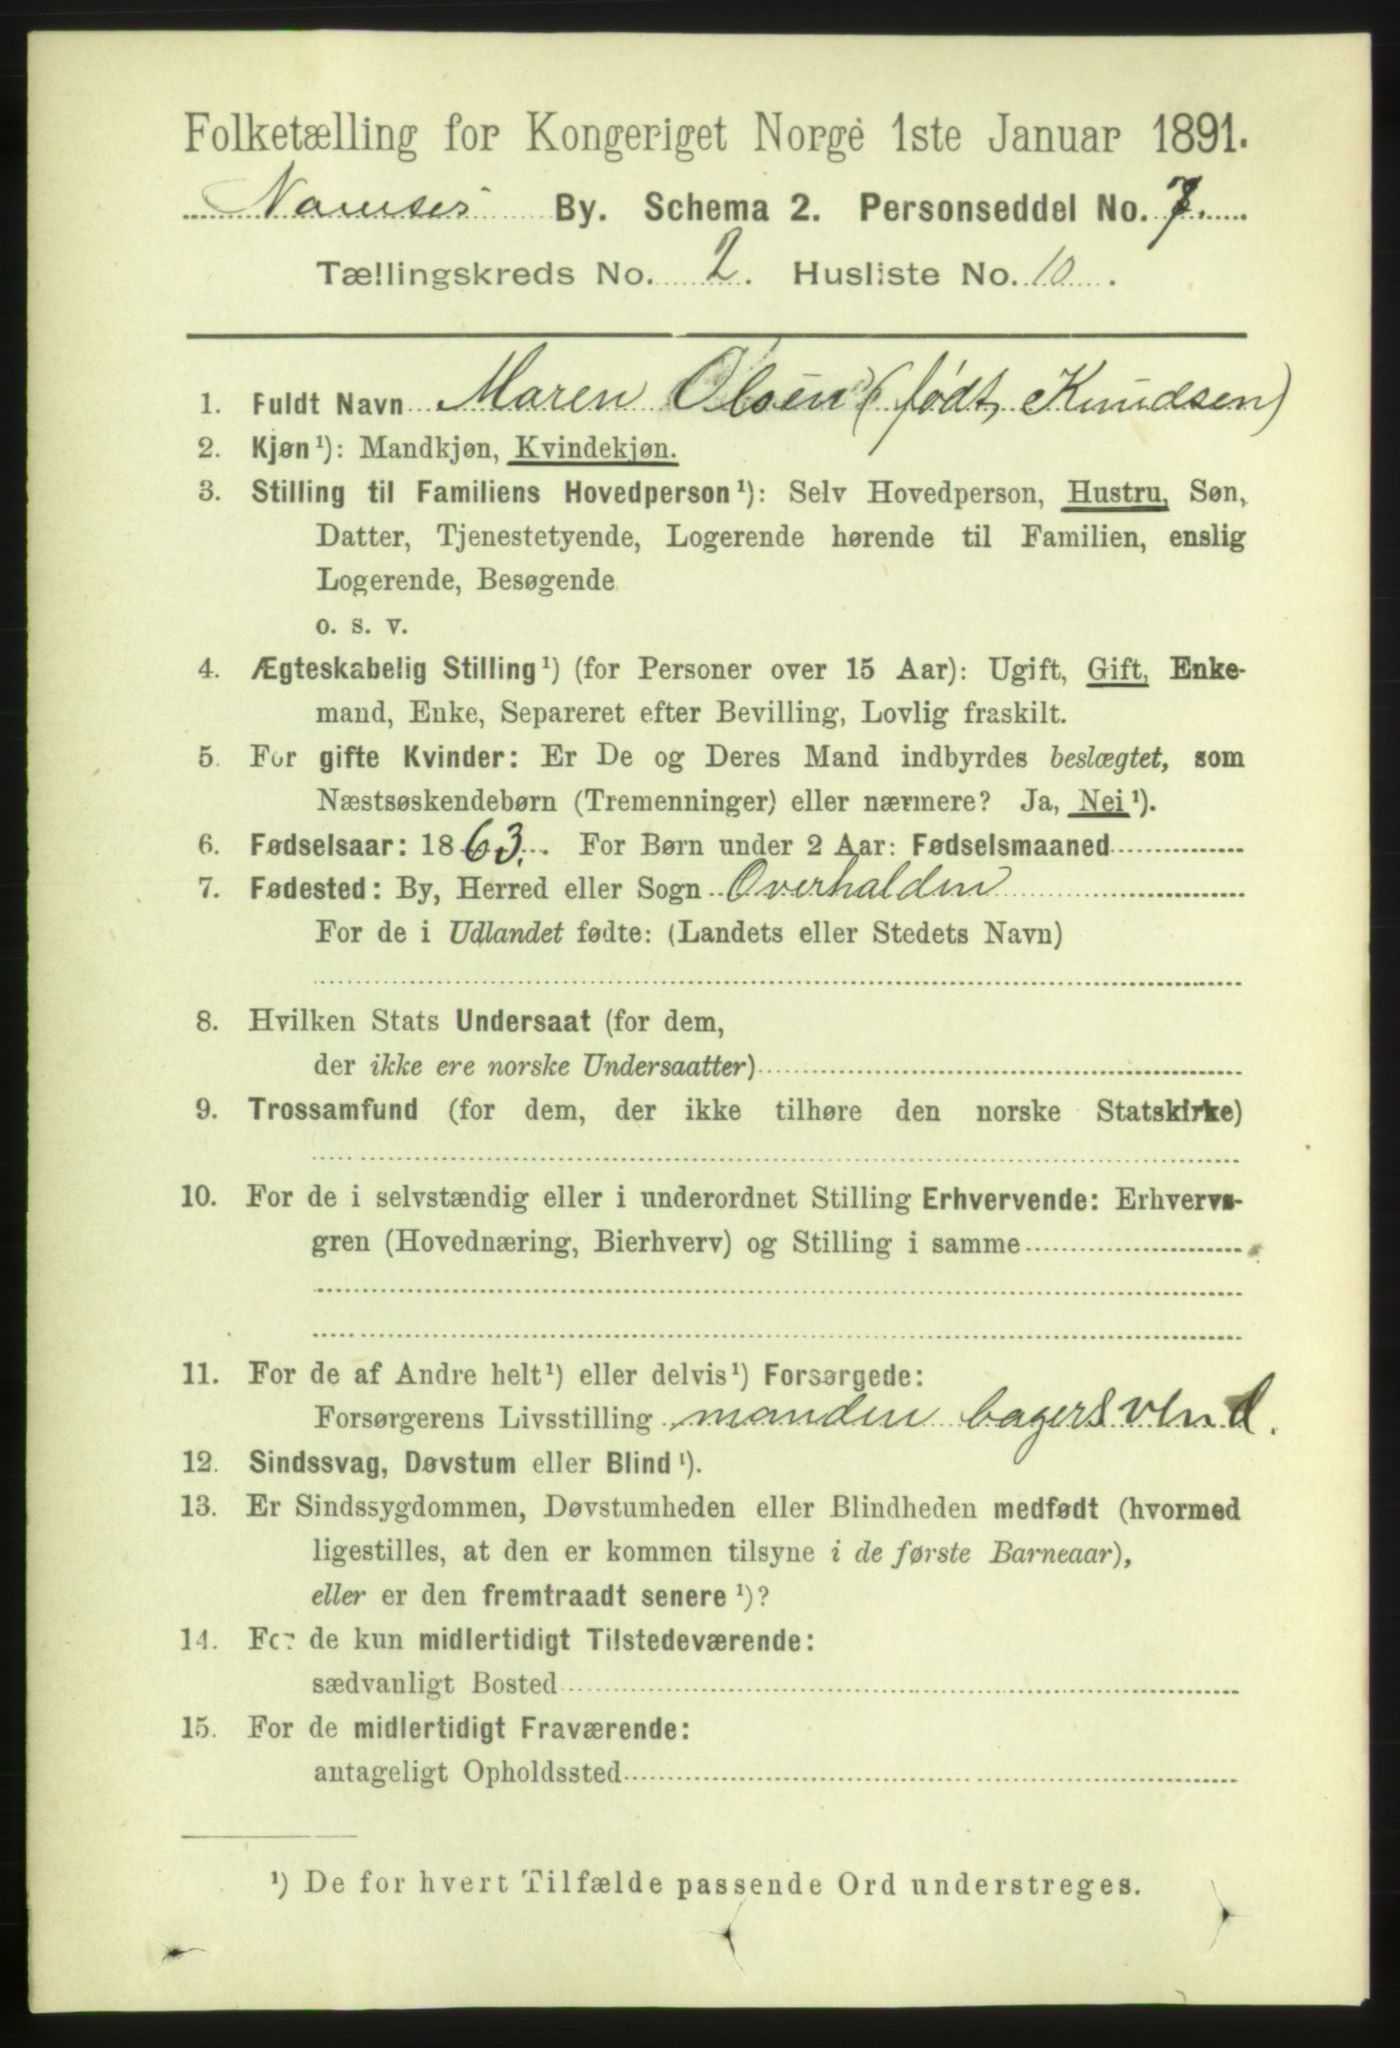 Folketælling for Kongeriget Norge 1ste Januar 1891.
Namsos By. Schema 2. Personseddel No. 7.
Tællingskreds No. 2. Husliste No. 10.
1. Fuldt Navn Maren Olsen (født, Knudsen)
2. Kjøn¹): Mandkjøn, Kvindekjøn.
3. Stilling til Familiens Hovedperson¹): Selv Hovedperson, Hustru, Søn,
Datter, Tjenestetyende, Logerende hørende til Familien, enslig
Logerende, Besøgende
o. s. v.
4. Ægteskabelig Stilling¹) (for Personer over 15 Aar): Ugift, Gift, Enke-
mand, Enke, Separeret efter Bevilling, Lovlig fraskilt.
5. For gifte Kvinder: Er De og Deres Mand indbyrdes beslægtet, som
Næstsøskendebørn (Tremenninger) eller nærmere? Ja, Nei¹).
6. Fødselsaar: 1863. For Børn under 2 Aar: Fødselsmaaned
7. Fødested: By, Herred eller Sogn Overhalden
For de i Udlandet fødte: (Landets eller Stedets Navn)
8. Hvilken Stats Undersaat (for dem,
der ikke ere norske Undersaatter)
9. Trossamfund (for dem, der ikke tilhøre den norske Statskirke)
10. For de i selvstændig eller i underordnet Stilling Erhvervende: Erhvervs-
gren (Hovednæring, Bierhverv) og Stilling i samme
11. For de af Andre helt¹) eller delvis¹) Forsørgede:
Forsørgerens Livsstilling manden bagersvend.
12. Sindssvag, Døvstum eller Blind¹).
13. Er Sindssygdommen, Døvstumheden eller Blindheden medfødt (hvormed
ligestilles, at den er kommen tilsyne i de første Barneaar),
eller er den fremtraadt senere¹)?
14. For de kun midlertidigt Tilstedeværende:
sædvanligt Bosted
15. For de midlertidigt Fraværende:
antageligt Opholdssted
¹) De for hvert Tilfælde passende Ord understreges.